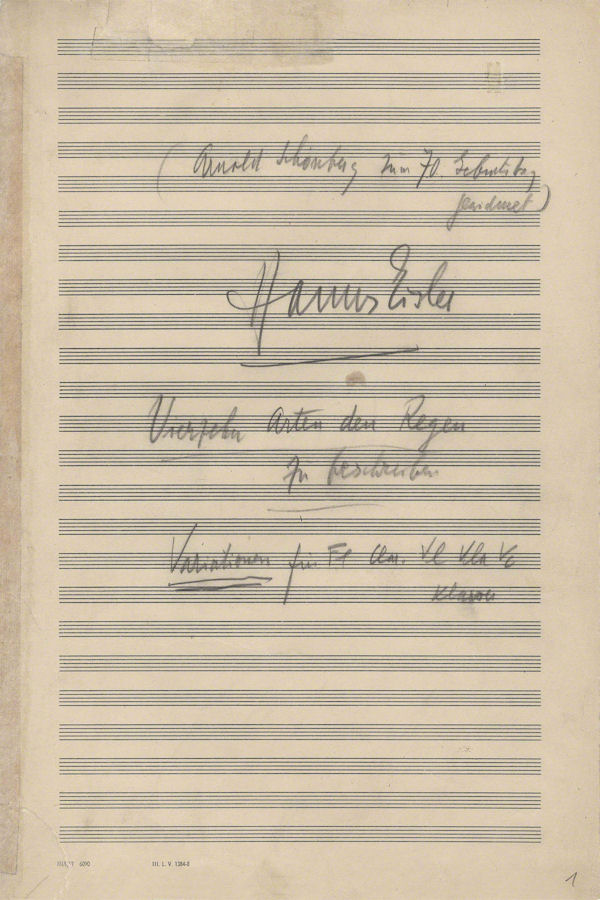 (Arnold Schönberg zum 70. Geburtstag
gewidmet)
Hanns Eisler
Vierzehn Arten den Regen
zu beschreiben
Variationen für Fl Clar. Vl Vla Vc
Klavier
III. L. V. 1284-8
1